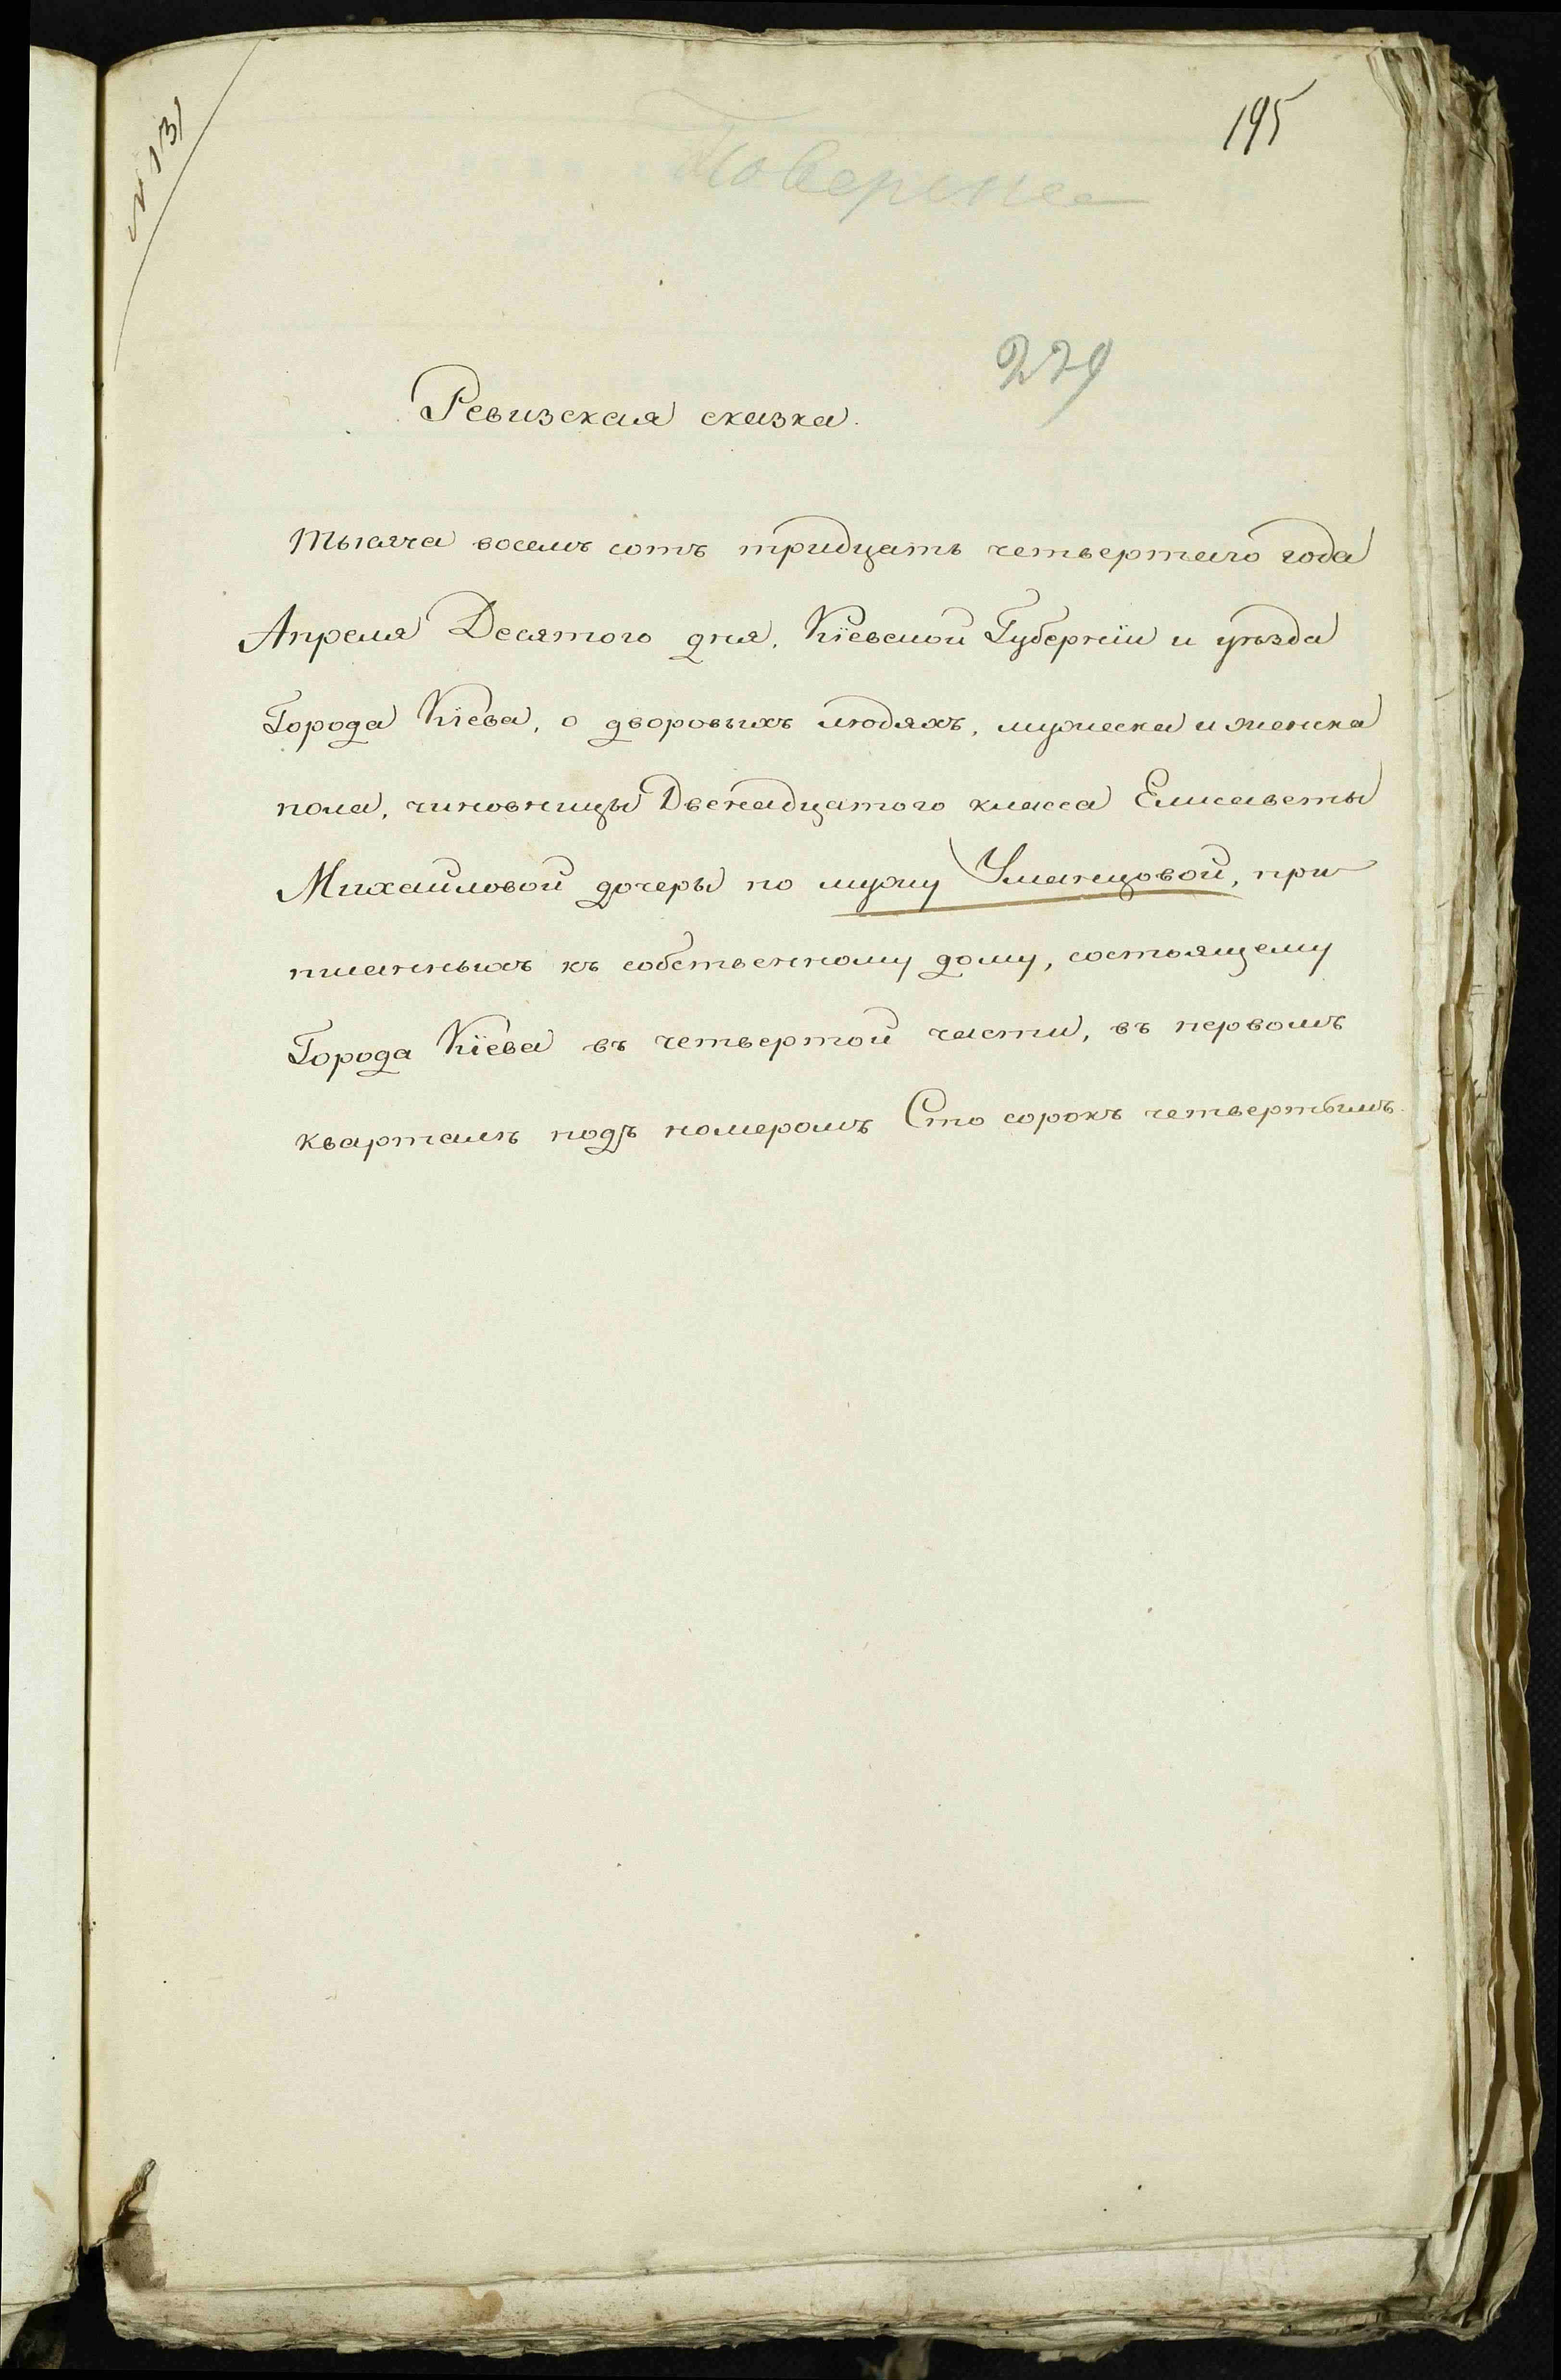 N 131
195
Поверене
229
Ревизская сказка.
Тысяча восемъ сотъ тридцать четвертаго года
Апреля Десятого дня, Кіевской Губерніи и уѣзда
Города Кіева, о дворовыхъ людяхъ, мужеска и женска
пола, чиновницы Двенадцатого класса Елисаветы
Михайловой дочеры по мужу Уманцовой, при
писанныхъ къ собственному дому, состоящему
Города Кіева въ четвертой части, въ первомъ
кварталѣ подъ номеромъ Сто сорокъ четвертымъ.